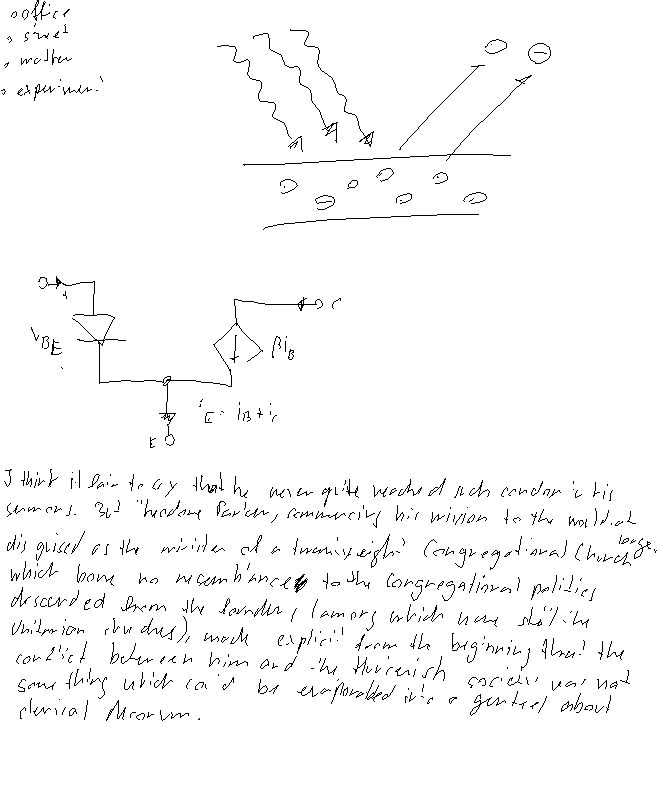 office
street
matter
experiment
C
VBE
βiB
iE = iB + iC
E
I think it fair to say that he never quite reached such candor in his
sermons. But Theodore Parker, commencing his mission to the world at large,
disguised as the minister of a twenty-eight Congregational Church
which bore no resemblance to the Congregational polities
descended from the founders (among which were still the
Unitarian churches), made explicit from the beginning that the
conflict between him and the society was not
something which could be evaporated into a genteel about
clerical decorum.